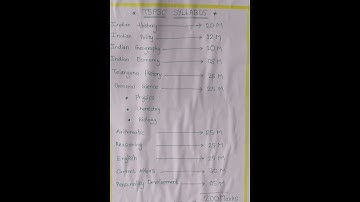 * TSPSC SYLLABUS *
Indian History → 20 M
Indian Polity → 12 M
Indian Geography → 10 M
Indian Economy → 05 M
Telangana History → 25 M
General Science → 25 M
• Physics
• Chemistry
• Biology
Arithmetic → 25 M
Reasoning → 25 M
English → 25 M
Current Affairs → 30 M
Personality Development → 05 M
200 Marks